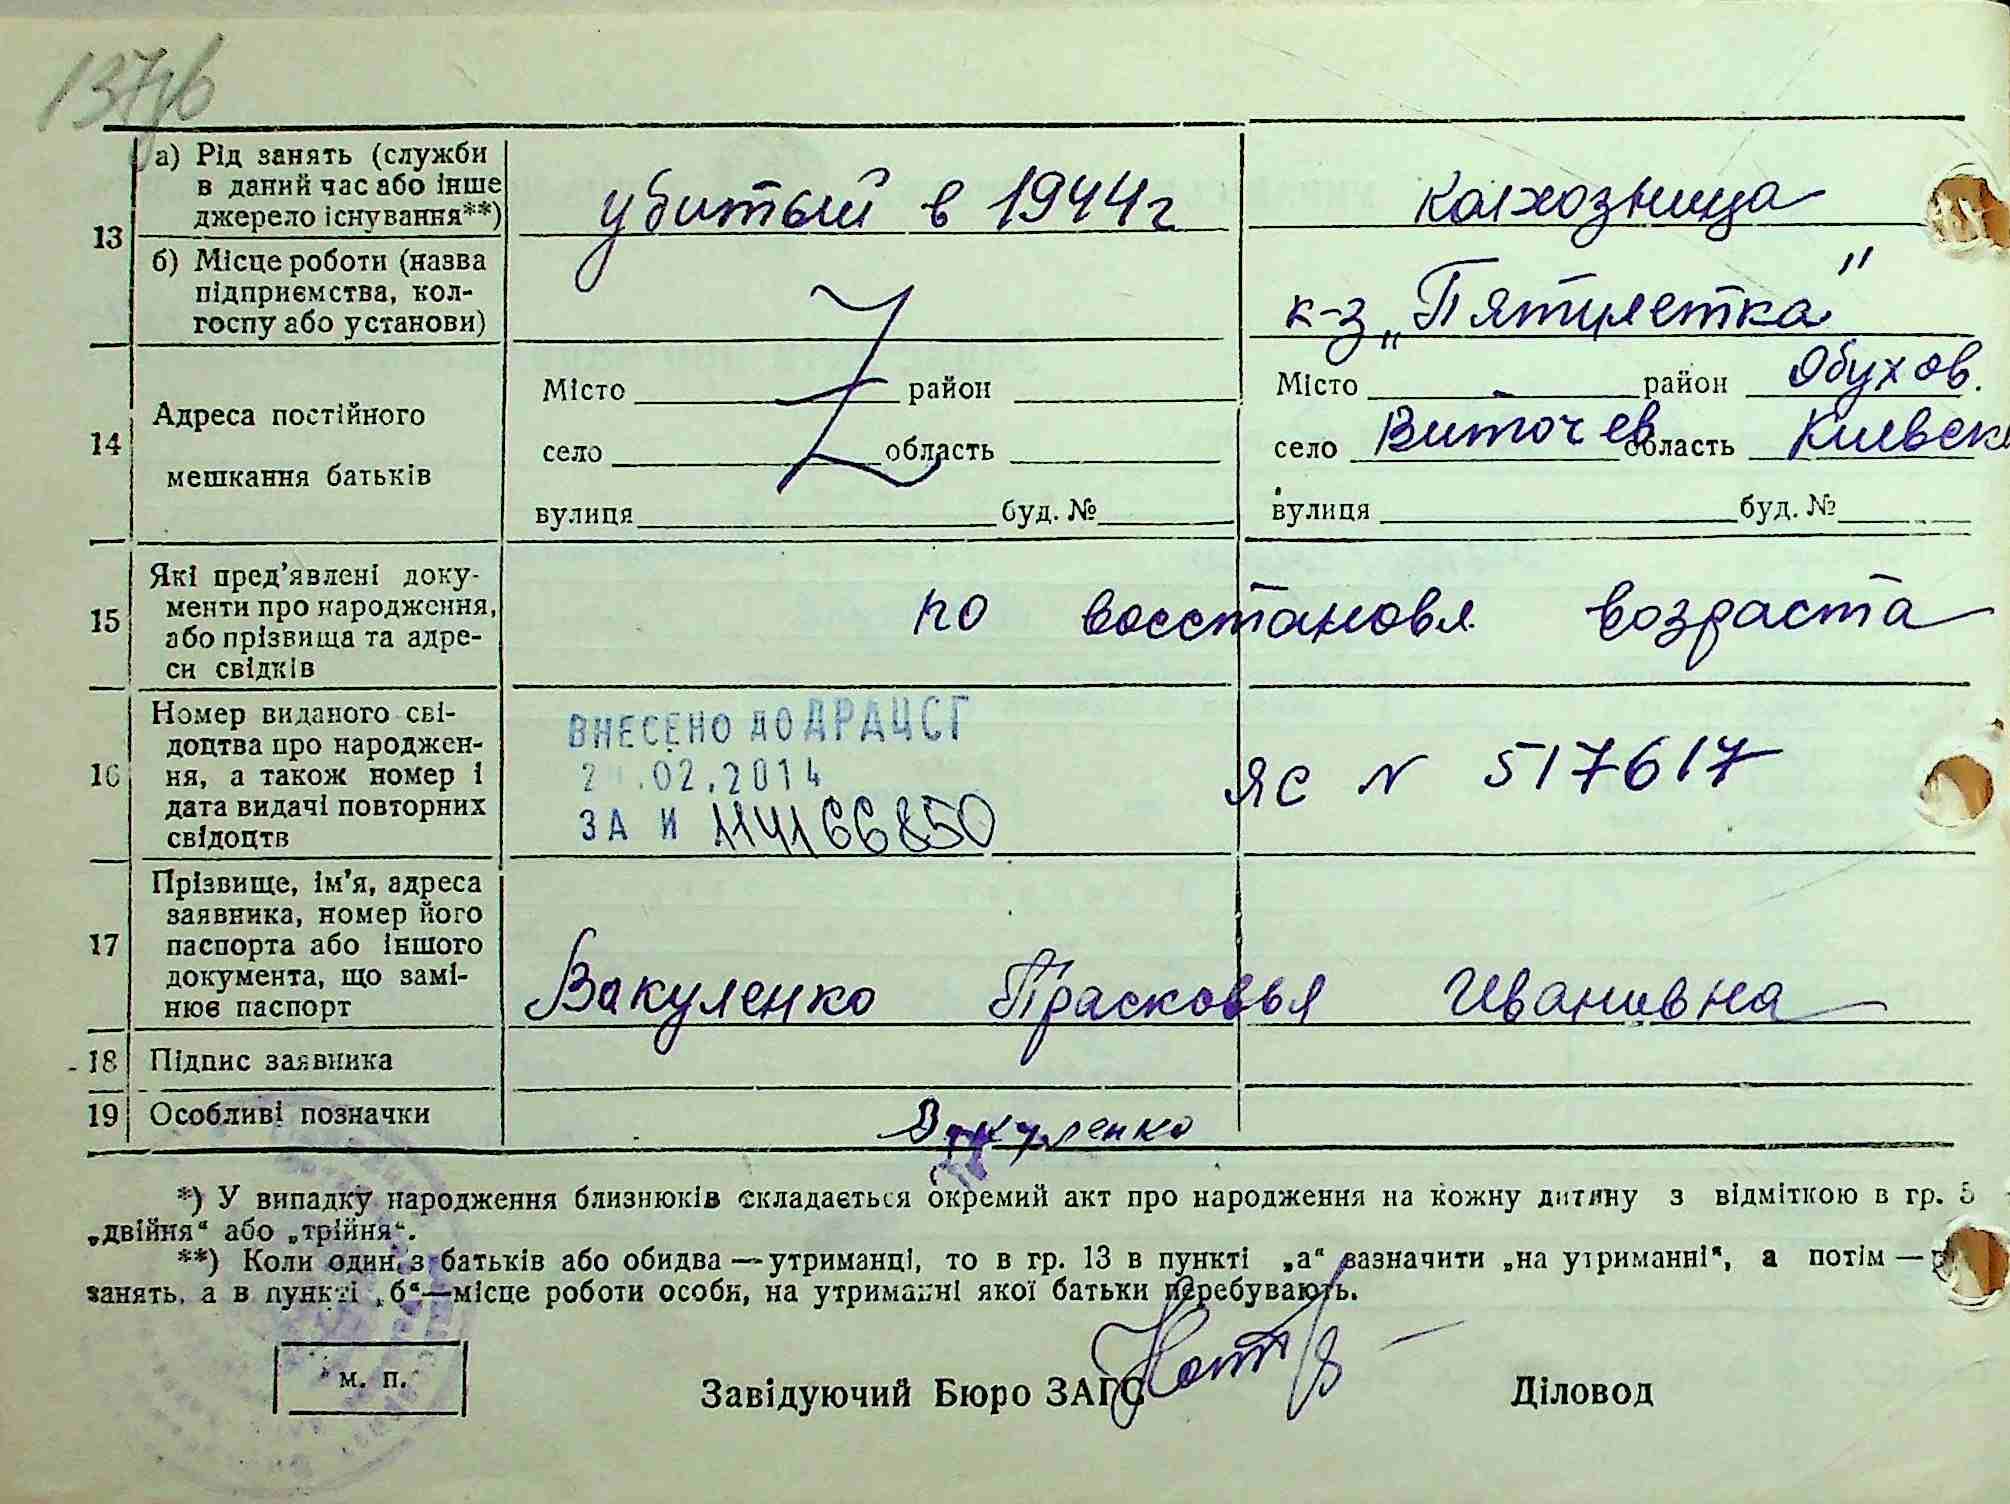 а) Рід занять (служби
в даний час або інше
джерело існування**)
убитый в 1944г
колхозница
13
б) Місце роботи (назва
підприємства, кол-
госпу або установи)
к-з „Пятилетка"
14
Адреса постійного
мешкання батьків
Місто район
село область
вулиця буд. №
Місто район Обухов.
село Виточев область Киевск
вулиця буд. №
15
Які пред’явлені доку-
менти про народження,
або прізвища та адре-
си свідків
по восстановл. возраста
16
Номер виданого сві-
доцтва про народжен-
ня, а також номер і
дата видачі повторних
свідоцтв
ВНЕСЕНО ДО ДРАЦСГ
.02.2014
ЗА №
ЯС N 517617
17
Прізвище, ім’я, адреса
заявника, номер його
паспорта або іншого
документа, що замі-
нює паспорт
Вакуленко Прасковья Ивановна
18 Підпис заявника
19 Особливі позначки
Вакуленко
*) У випадку народження близнюків складається окремий акт про народження на кожну дитину з відміткою в гр. 5
„двійня“ або „трійня“.
**) Коли один з батьків або обидва — утриманці, то в гр. 13 в пункті „а“ зазначити „на утриманні“, а потім —
занять, а в пункті „б“—місце роботи особи, на утриманні якої батьки перебувають.
м. п.
Завідуючий Бюро ЗАГС
Діловод